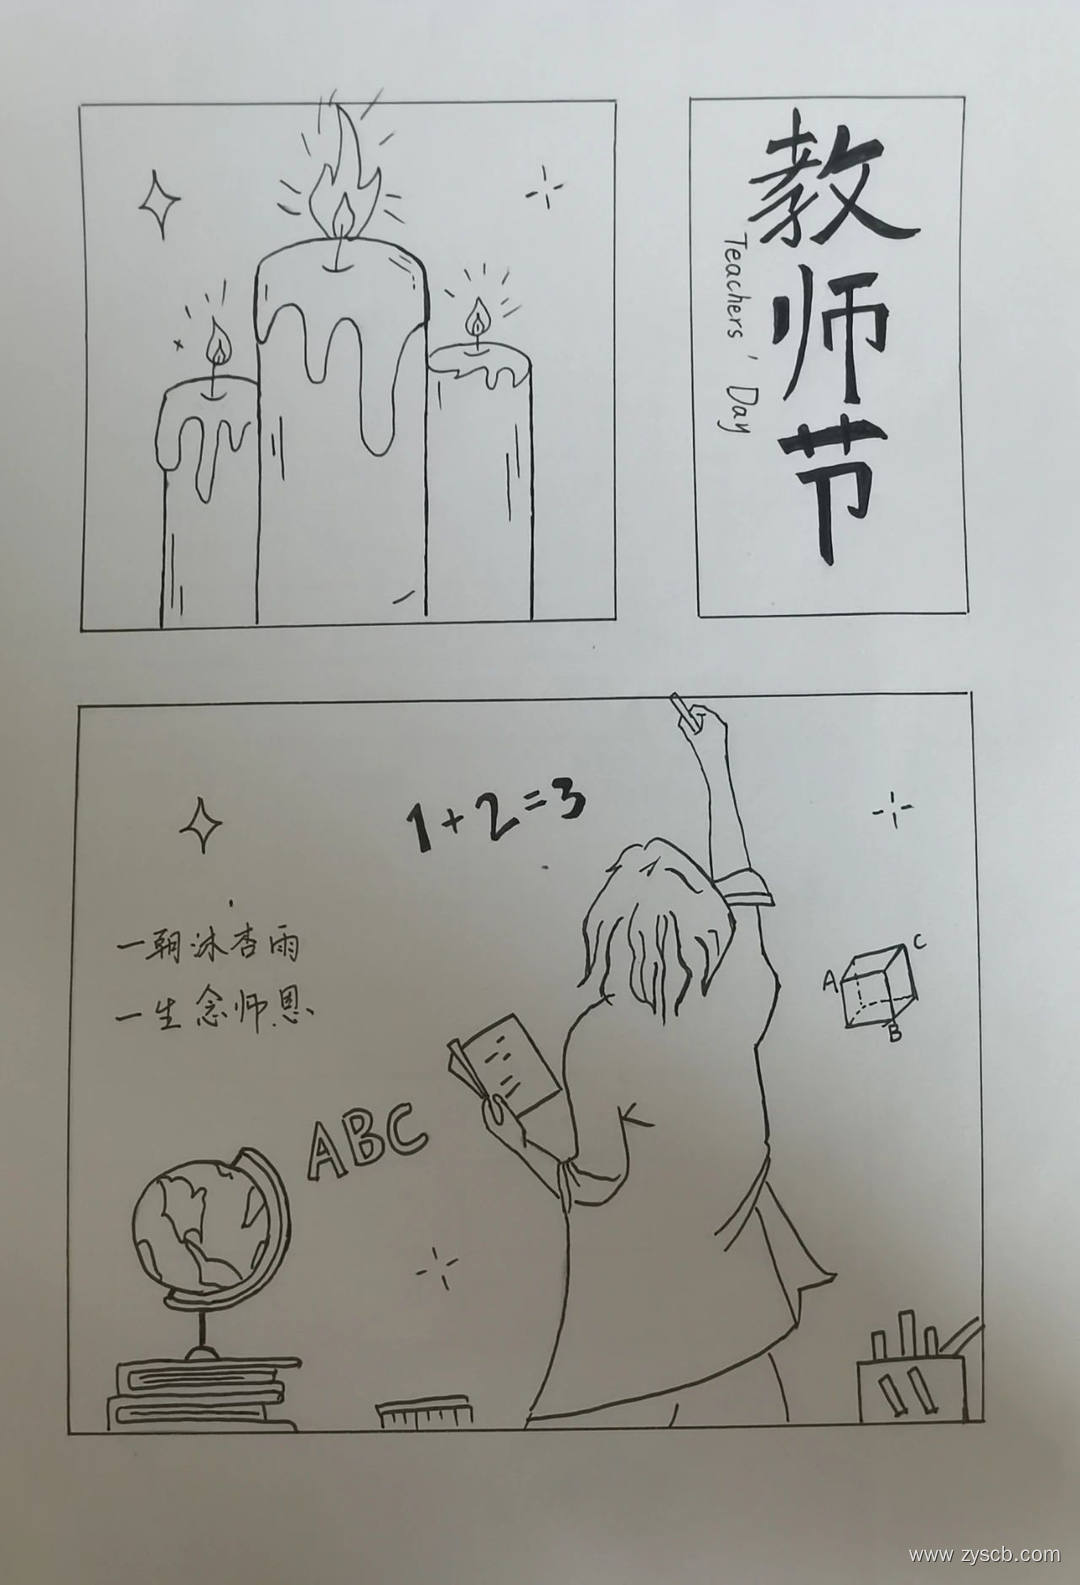 教师节
Teachers' Day
1+2=3
一朝沐杏雨
一生念师恩
A
C
B
ABC
www.zyscb.com